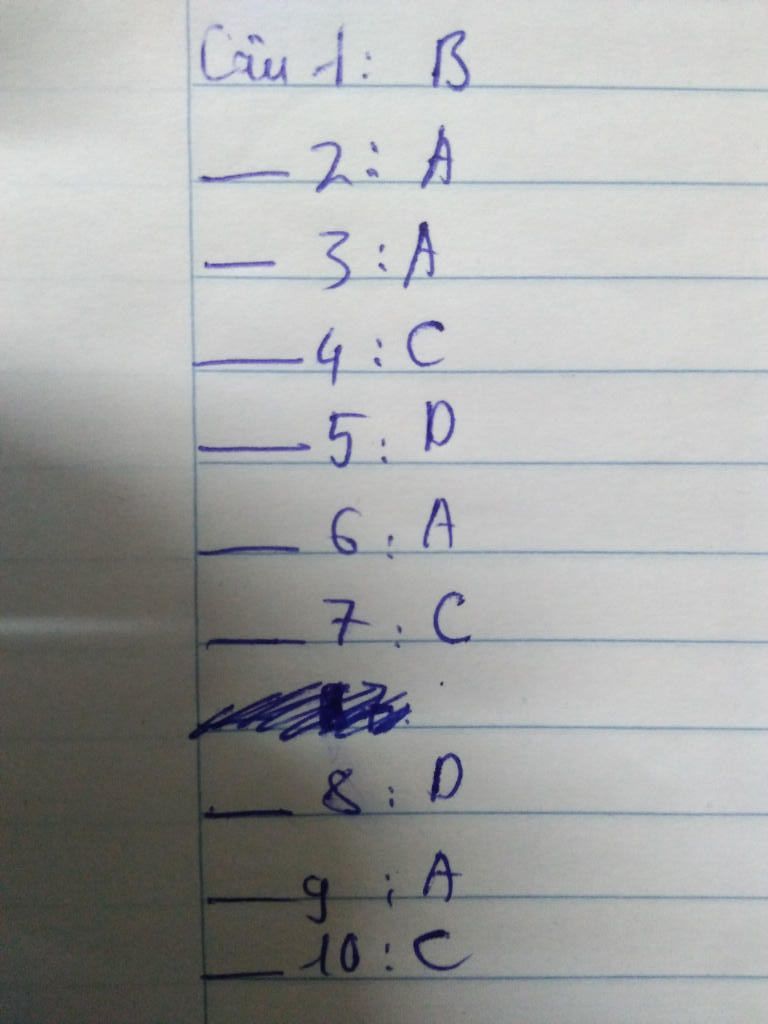 Câu 1: B
— 2: A
— 3: A
— 4: C
— 5: D
— 6: A
— 7: C
— 8: D
— 9: A
— 10: C